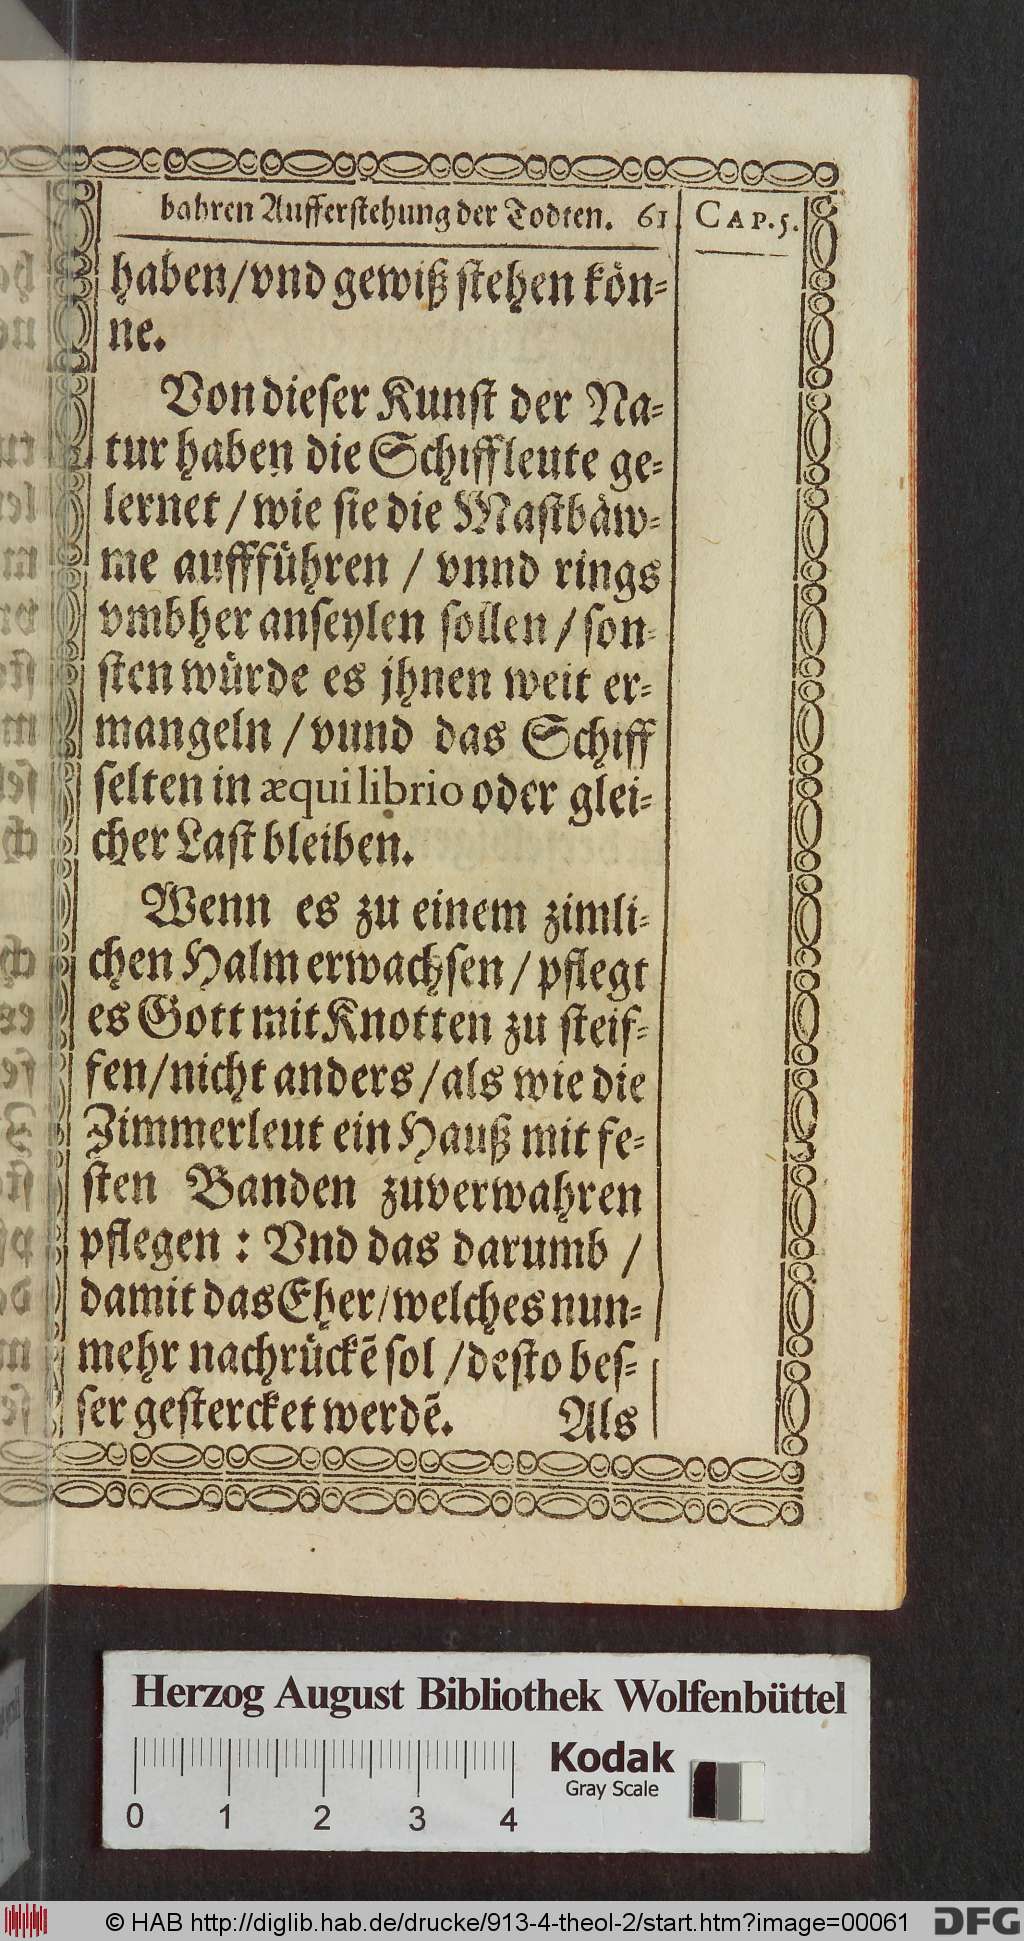 bahren Aufferstehung der Todten. 61. CAP. 5.
haben/vnd gewiß stehen kön-
ne.
Von dieser Kunst der Na-
tur haben die Schiffleute ge-
lernet / wie sie die Mastbäw-
me auffführen / vnnd rings
vmbher anseylen sollen / son-
sten würde es jhnen weit er-
mangeln / vund das Schiff
selten in æquilibrio oder glei-
cher Last bleiben.
Wenn es zu einem zimli-
chen Halm erwachsen / pflegt
es Gott mit Knotten zu steif-
fen/nicht anders/als wie die
Zimmerleut ein Hauß mit fe-
sten Banden zuverwahren
pflegen : Vnd das darumb /
damit das Eher/welches nun-
mehr nachrückẽ sol /desto bes-
ser gestercket werdẽ. Als
Herzog August Bibliothek Wolfenbüttel
Kodak
Gray Scale
0 1 2 3 4
© HAB http://diglib.hab.de/drucke/913-4-theol-2/start.htm?image=00061 DFG